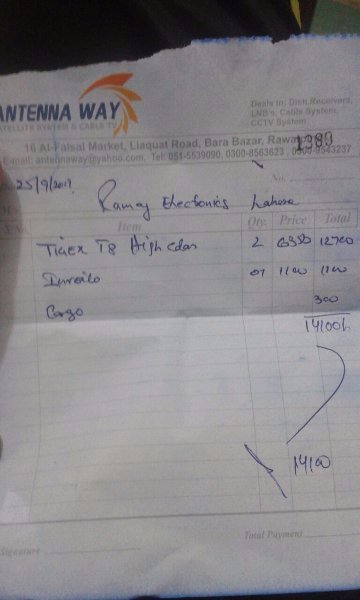 ANTENNA WAY
SATELLITE SYSTEM & CABLE TV
Deals in: Dish, Receivers,
LNB's, Cable System,
CCTV System
16 Al-Faisal Market, Liaquat Road, Bara Bazar,
E-mail: antennaway@yahoo.com, Tel: 051-5539090, 0300-8563623,
1389
25/9/2017
No.
Electronics Lahore
Item Qty. Price Total
Tiger T8 High 2 6350 12700
01 1100 1100
Cargo 300
14100/-
14100
Total Payment
Signature